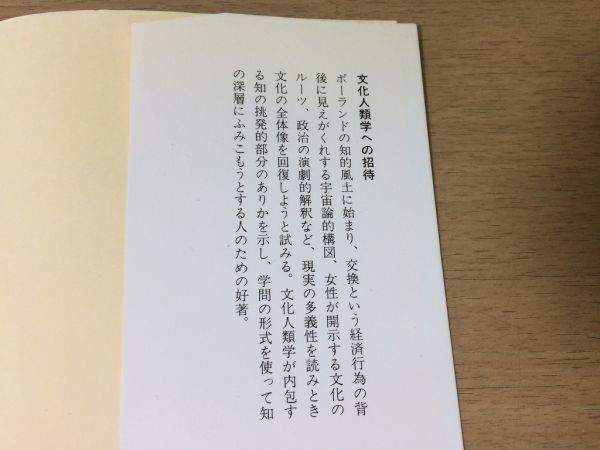 文化人類学への招待
ポーランドの知的風土に始まり、交換という経済行為の背
後に見えがくれする宇宙論的構図、女性が開示する文化の
ルーツ、政治の演劇的解釈など、現実の多義性を読みとき
文化の全体像を回復しようと試みる。文化人類学が内包す
る知の挑発的部分のありかを示し、学問の形式を使って知
の深層にふみこもうとする人のための好著。